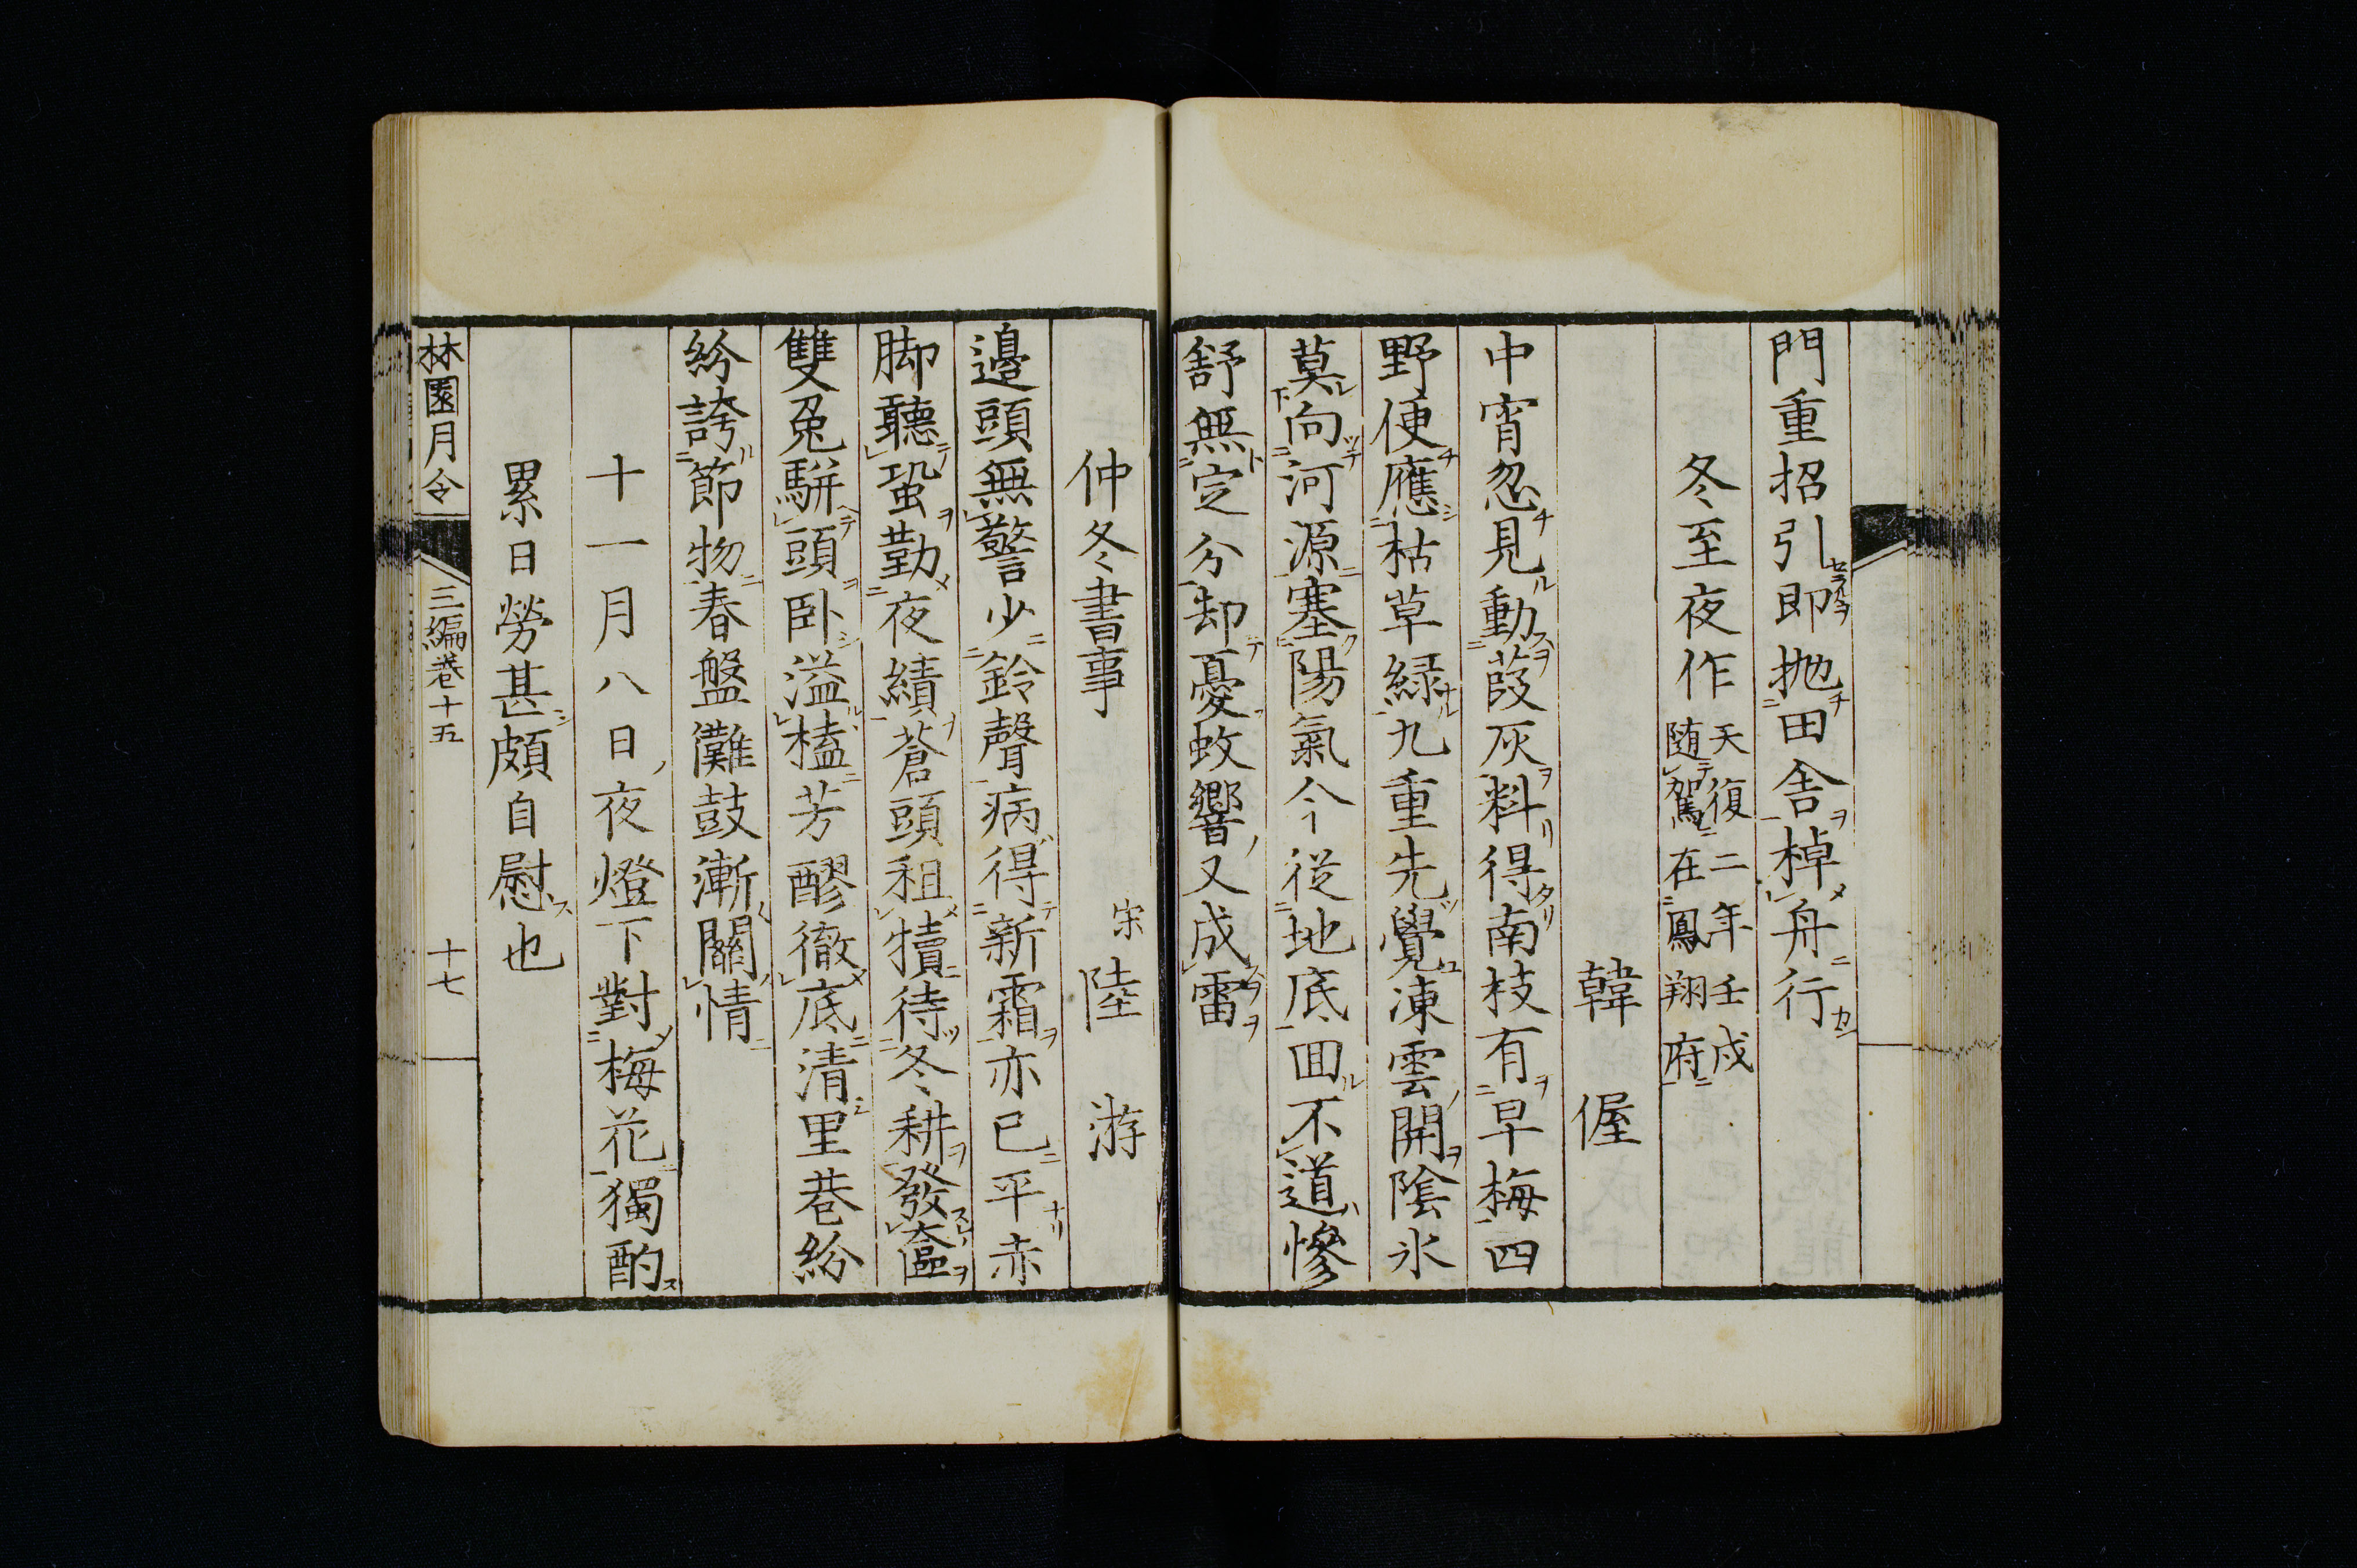 門重招引即抛田舎棹舟行
冬至夜作天復二年壬戌
随駕在鳳翔府
韓偓
中宵忽見動葭灰料得南枝有早梅四
野便應枯草緑九重先覺凍雲開陰氷
莫向河源塞陽氣今従地底囬不道慘
舒無定分却憂蚊響又成雷
仲冬書事 宋陸游
邉頭無警少鈴聲病得新霜亦已平赤
脚聽蛩勤夜績蒼頭租犢待冬耕發奩
雙兔駢頭卧溢榼芳醪徹底清里巷紛
紛誇節物春盤儺鼓漸關情
十一月八日夜燈下對梅花獨酌
累日勞甚頗自慰也
林園月令 三編巻十五 十七